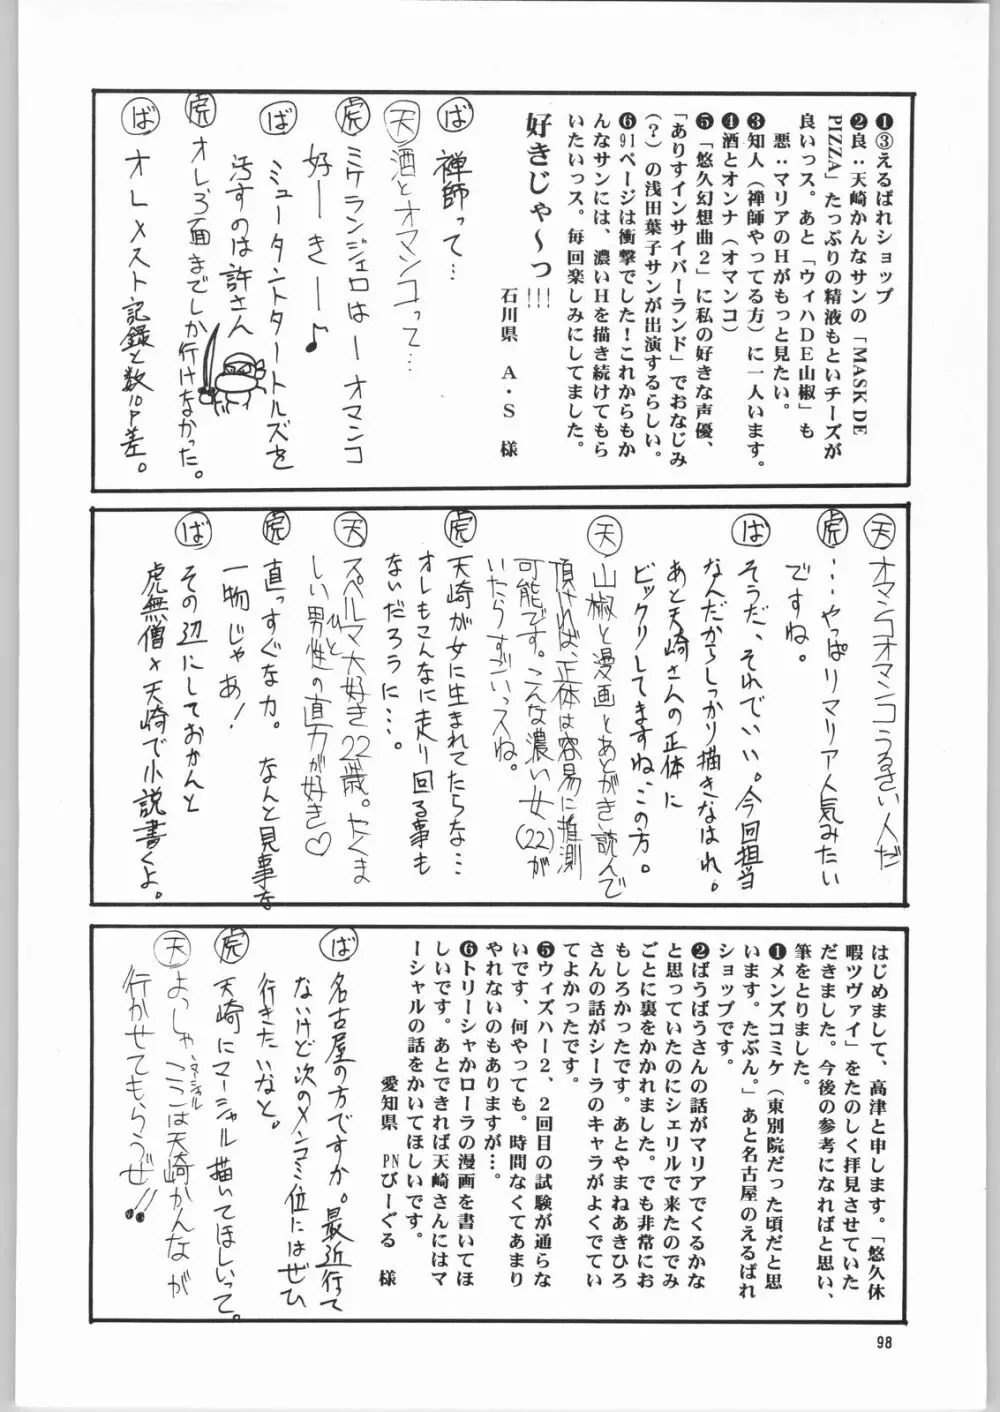 ❶③えるぱれショップ
❷良：天崎かんなサンの「MASK DE
PIZZA」たっぷりの精液もといチーズが
良いっス。あと「ウィハDE山椒」も
悪：マリアのHがもっと見たい。
❸知人（禅師やってる方）に一人います。
❹酒とオンナ（オマンコ）
❺「悠久幻想曲2」に私の好きな声優、
「ありすインサイバーランド」でおなじみ
（？）の浅田葉子サンが出演するらしい。
❻91ページは衝撃でした！これからもか
んなサンには、濃いHを描き続けてもら
いたいっス。毎回楽しみにしてました。
好きじゃ～っ!!!
石川県　A・S　様
ば 禅師って…
天 酒とオマンコって…
虎 ミケランジェロはーオマンコ
好ーきー♪
ば ミュータントタートルズを
汚すのは許さん
虎 オレ3面までしか行けなかった。
ば オレメスト記録と数10P差。
天 オマンコオマンコうるさい人だ
虎 …やっぱリマリア人気みたい
ですね。
ば そうだ、それでいい。今回担当
なんだからしっかり描きなはれ。
あと天崎さんの正体に
ビックリしてますね、この方。
天 山椒と漫画とあとがき読んで
頂ければ、正体は容易に推測
可能です。こんな濃い女(22)が
いたらすごいっスね。
虎 天崎が女に生まれてたらな…
オレもこんなに走り回る事も
ないだろうに…。
天 スペルマ大好き22歳。たくま
しい男性の直方が好き♡
ひと
虎 直っすぐな力。なんと見事な
一物じゃあ！
ば その辺にしておかんと
虎無僧×天崎で小説書くよ。
はじめまして、高津と申します。「悠久休
暇ツヴァイ」をたのしく拝見させていた
だきました。今後の参考になればと思い、
筆をとりました。
❶メンズコミケ（東別院だった頃だと思
います。たぶん。）あと名古屋のえるぱれ
ショップです。
❷ばうばうさんの話がマリアでくるかな
と思っていたのにシェリルで来たのでみ
ごとに裏をかかれました。でも非常にお
もしろかったです。あとやまねあきひろ
さんの話がシーラのキャラがよくでてい
てよかったです。
❺ウィズハー2、2回目の試験が通らな
いです、何やっても。時間なくてあまり
やれないのもありますが…。
❻トリーシャかローラの漫画を書いてほ
しいです。あとできれば天崎さんにはマ
ーシャルの話をかいてほしいです。
愛知県　PNびーぐる　様
ば 名古屋の方ですか。最近行って
ないけど次のメンコミ位にはぜひ
行きたいなと。
虎 天崎にマーシャル描いてほしいって。
天 よっしゃ、ここは天崎かんなが
マーシャル
行かせてもらうぜ!!
98